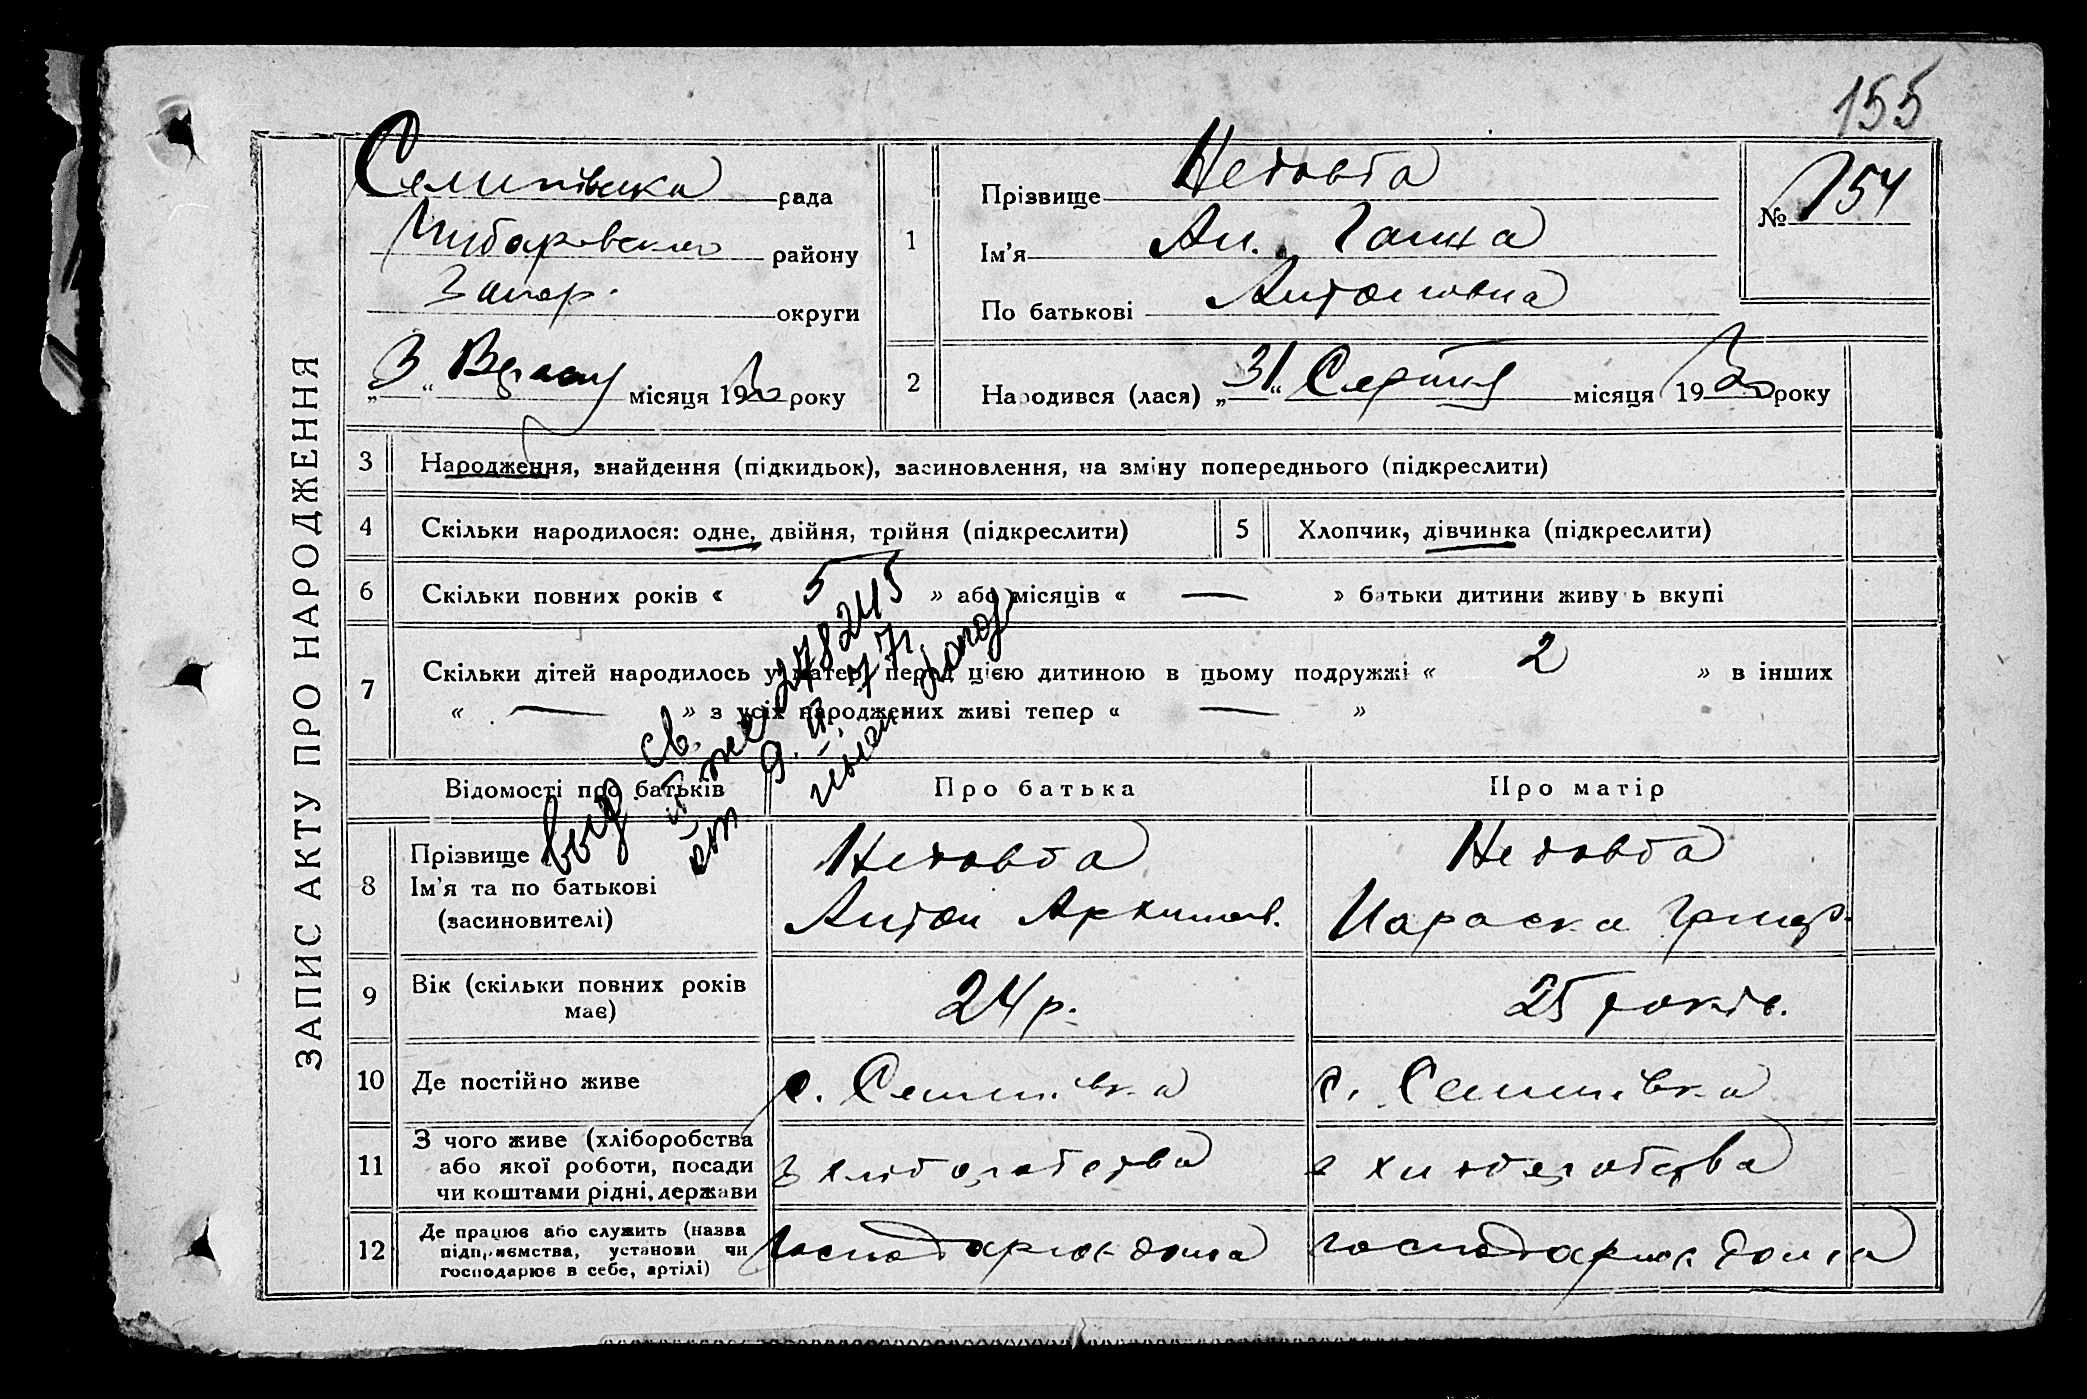 155
ЗАПИС АКТУ ПРО НАРОДЖЕННЯ
рада
району
Запор. округи
„3“ місяця 192 року
1
Прізвище Нетовта
Ім'я Ганна
По батькові Антоновна
№ 154
2 Народився (лася) „31“ Серпня місяця 192 року
3 Народження, знайдення (підкидьок), засиновлення, на зміну попереднього (підкреслити)
4 Скільки народилося: одне, двійня, трійня (підкреслити) 5 Хлопчик, дівчинка (підкреслити)
6 Скільки повних років « 5 » або місяців « — » батьки дитини живуть вкупі
7 Скільки дітей народилось у матері перед цією дитиною в цьому подружжі « 2 » в інших
« — » з усіх народжених живі тепер « — »
выд св.
278245
от 9.
Відомості про батьків Про батька Про матір
8 Прізвище Нетовта Нетовта
Ім'я та по батькові Антон Параска Григор.
(засиновителі)
9 Вік (скільки повних років має) 24 р. 25 років.
10 Де постійно живе с. с.
11 З чого живе (хліборобства або якої роботи, посади чи коштами рідні, держави з хліборобства з хліборобства
12 Де працює або служить (назва підприємства, установи чи господарює в себе, артілі) господарює дома господарює дома